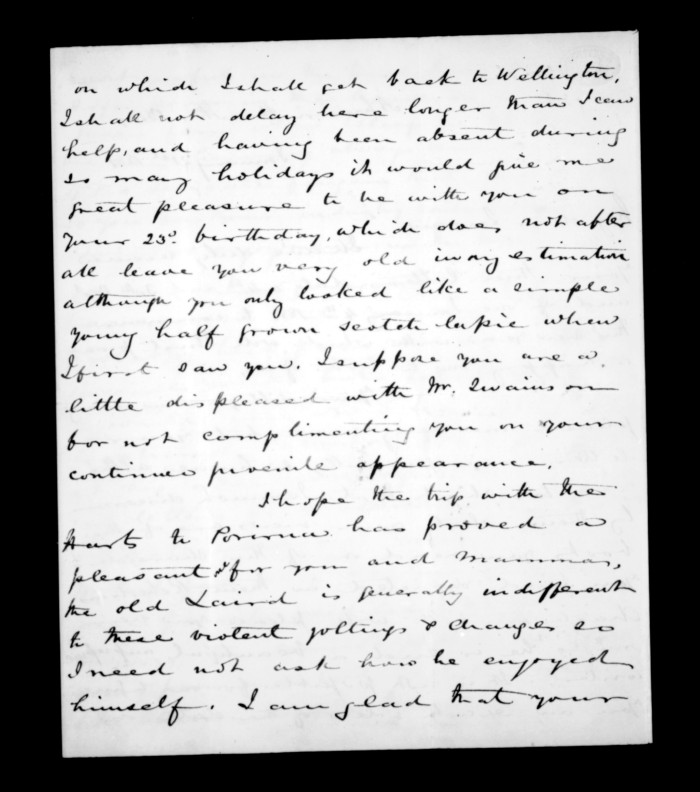 on which I shall get back to Wellington,
I shall not delay here longer than I can
help, and having been absent during
so many holidays it would give me
great pleasure to be with you on
your 23d. birthday, which does not after
all leave you very old in my estimation
although you only looked like a simple
young half grown scotch lassie when
I first saw you. I suppose you are a
little displeased with Mr. Swainson
for not complimenting you on your
continued juvenile appearance.
I hope the trip with the
Harts to Porirua has proved a
pleasant for you and Mamma,
the old Laird is generally indifferent
to these violent joltings & changes so
I need not ask how he enjoyed
himself. I am glad that your